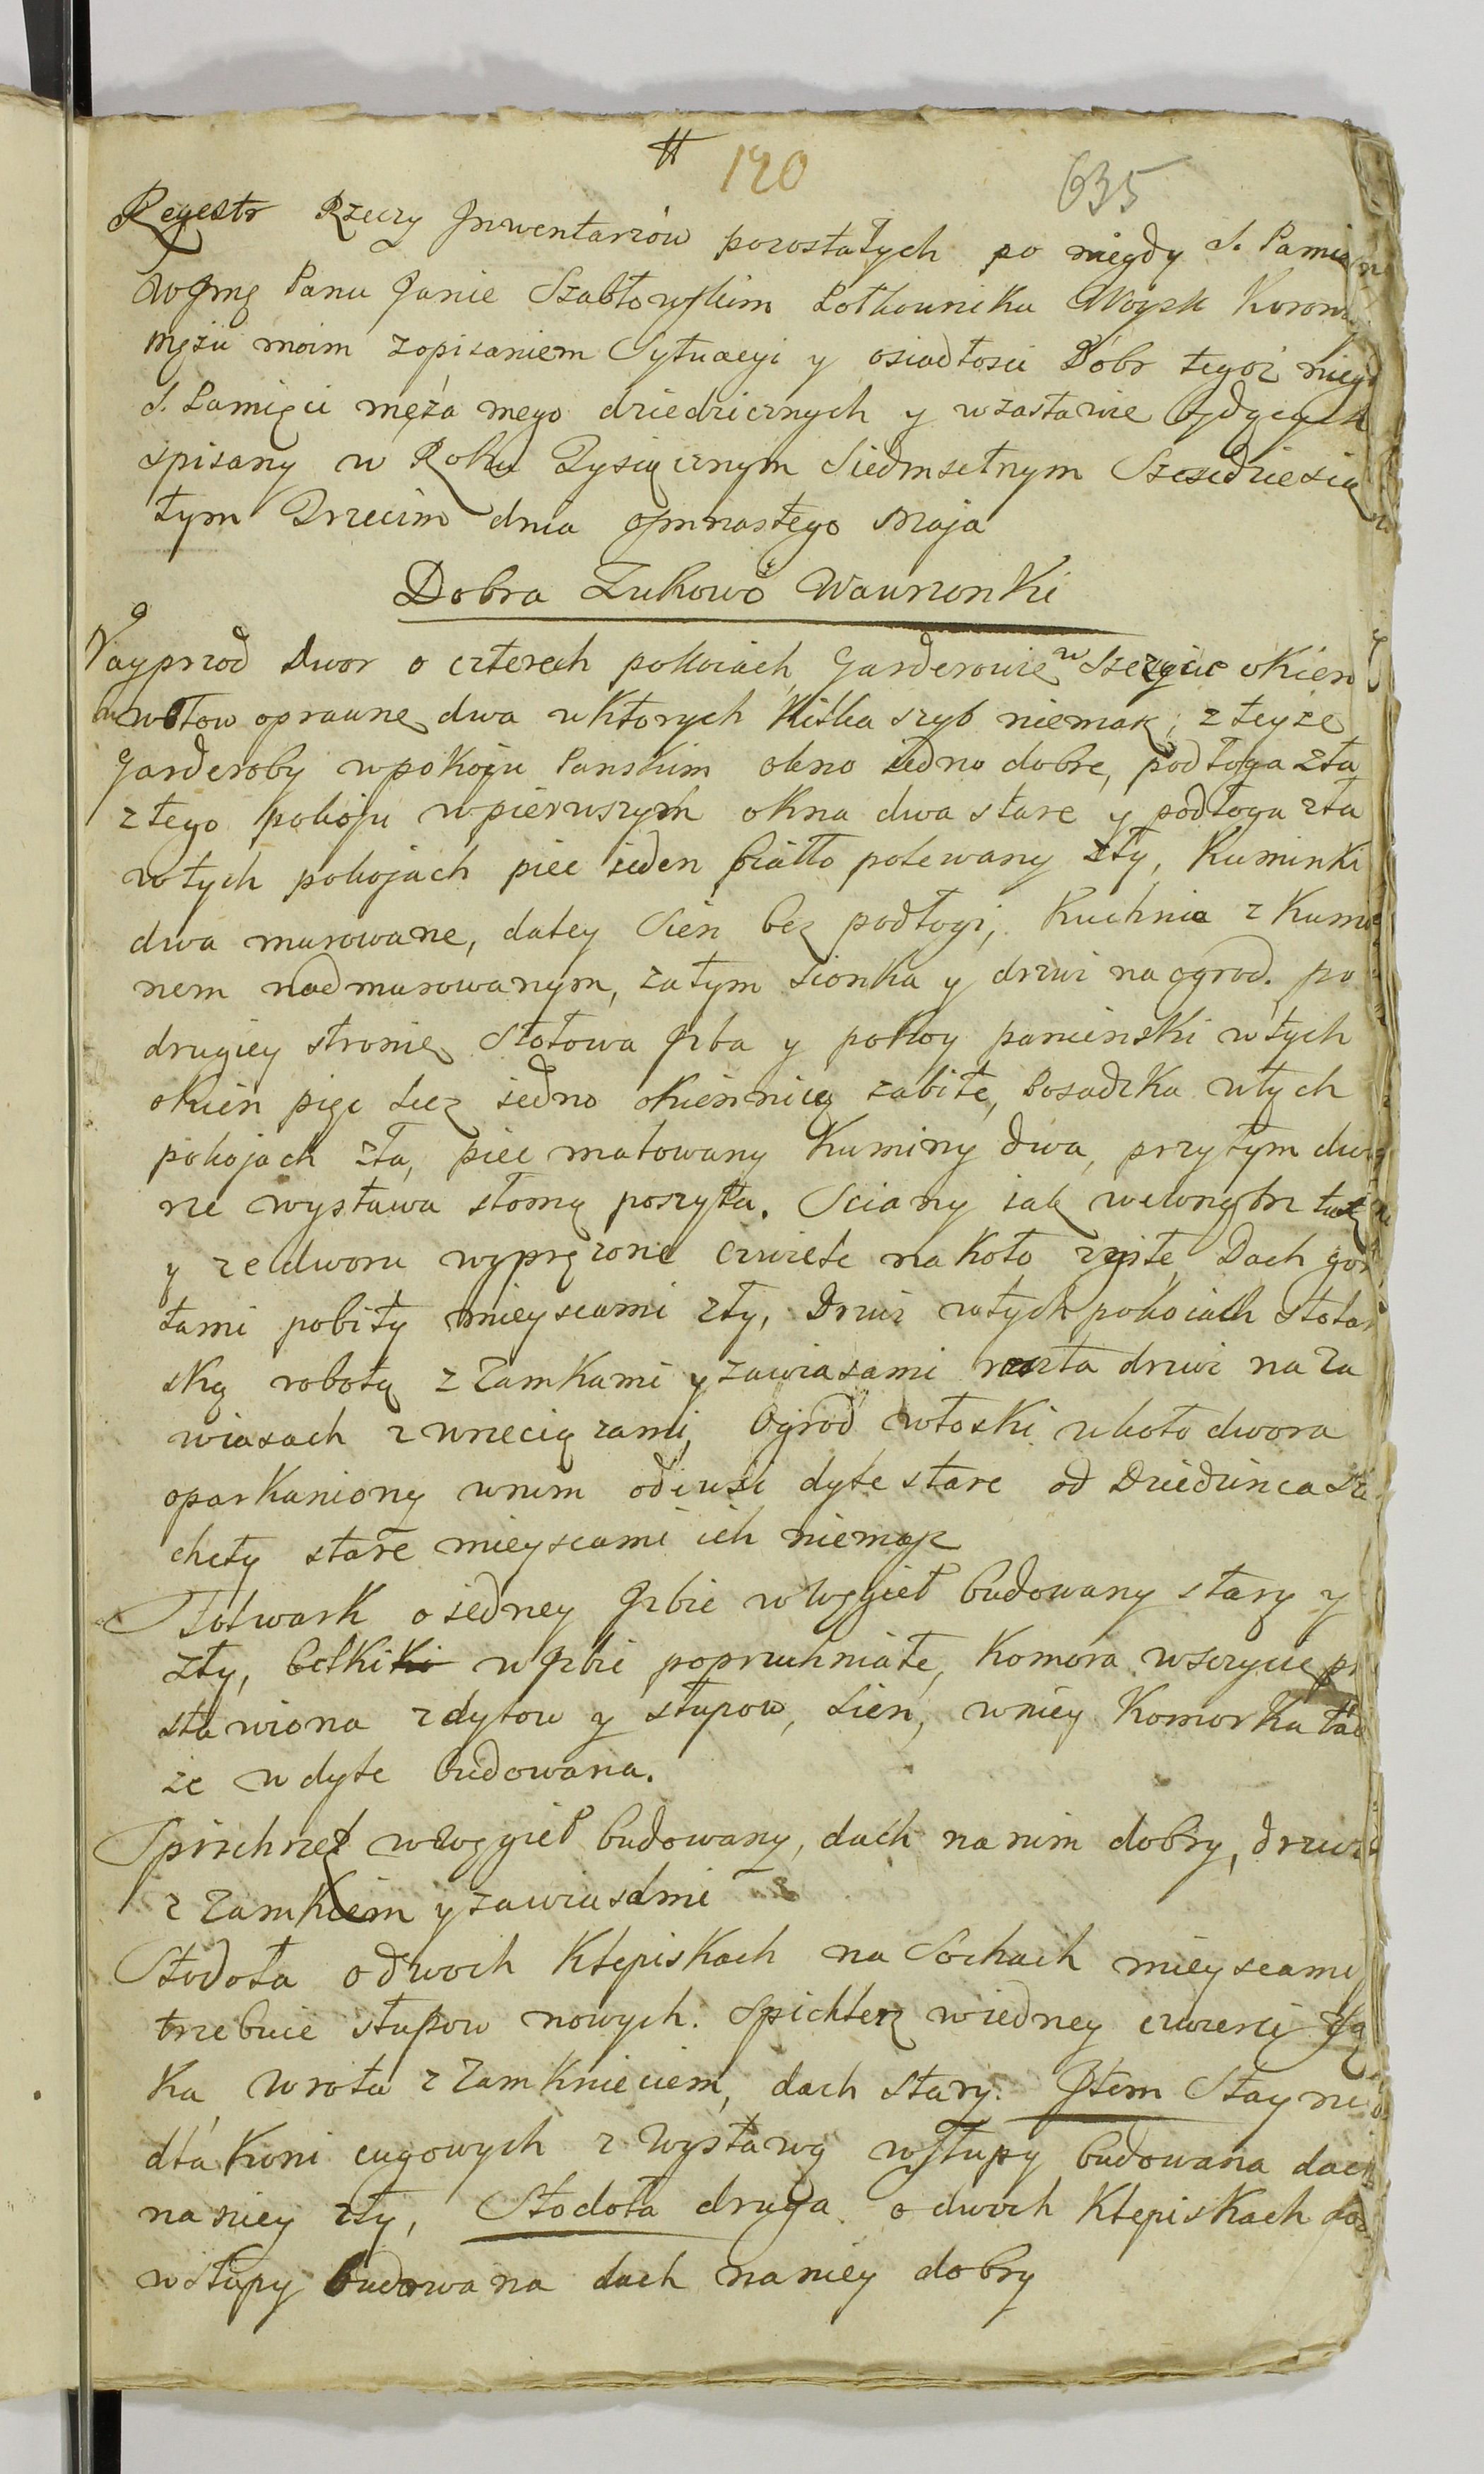 # 120 635
Regestr Rzeczy Jnwentarzow pozostałych po niegdy S. Pamię
WJmę Panu Janie Szabłowskim Połkowniku Woysk Koron
mężu moim zopisaniem Sytuacyi y osiadłosci Dobr tegoż niegd
S. Pamięci męża mego dziedzicznych y wzastawie będących
spisany w Roku Tysiącznym Siedmsetnym Szescdziesią
tym Trzecim dnia osmnastego Maja
Dobra Zukowo Wawrzonki
Nayprzod Dwor o czterech pokoiach Garderowie w Szczycie okien
wołow oprawne dwa wktorych kilka szyb niemasz; z teyże
Garderoby wpokoju Panskim okno iedno dobre, podłoga zła
z tego pokoju wpierwszym okna dwa stare y podłoga zła
w tych pokojach piec ieden biało polewany zły, Kuminki
dwa murowane, daley Sien bez podłogi, Kuchnia z Kumi
nem nadmurowanym, zatym Sionka y drzwi na ogrod. po
drugiey stronie Stołowa Jzba y pokoy panienski wtych
okien pięc lecz iedno okiennicą zabite, Posadzka wtych
pokojach zła, piec malowany Kuminy dwa, przytym dwi
rze wystawa słomą poszyta. Sciany iak wewnątrz tak
y ze dworu wyprężone czwiele na koło zgniłe Dach gon
tami pobity mieyscami zły, Drzwi wtych pokoiach stolar
ską robotą z Zamkami y zawiasami reszta drzwi na Za
wiasach z wrzeciązami, Ogrod włoski wkoło dwora
oparkaniony wnim od wsi dyle stare od Dziedzinca Szt
chety stare mieyscami ich niemasz
Folwark o iedney Jzbie w węgieł budowany stary y
zły, belki w Jzbie popruchniałe, Komora wszczycie pr
stawiona z dylow y słupow, Sien, wniey Komorka tak
że w dyle budowana.
Spichrz w węgieł budowany, dach na nim dobry, drzwi
z Zamkiem y zawiasami
Stodoła o dwoch Klepiskach na Sochach mieyscami
trzebuie słupow nowych. Spichlerz wiedney czwierci
ka wrota z Zamknieciem, dach stary. Jtem Stayni
dla Koni cugowych z Wystawą w słupy budowana dach
na niey zły, Stodoła druga o dwoch Klepiskach
w słupy budowana dach naniey dobry